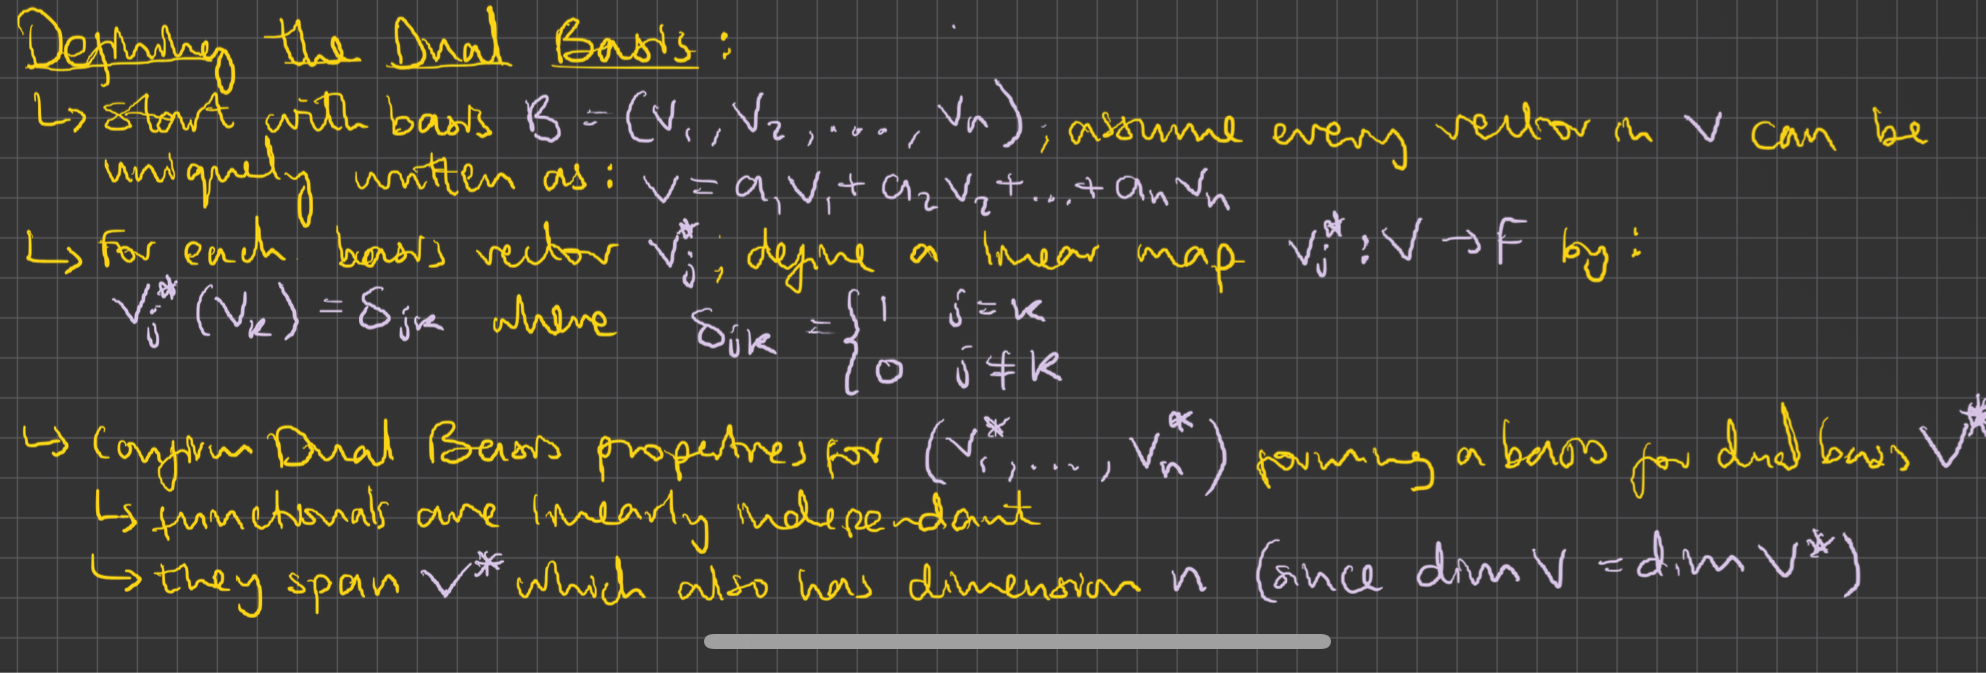 Defining the Dual Basis:
↳ start with basis B = (v₁, v₂, ..., vₙ), assume every vector in V can be
uniquely written as: v = a₁v₁ + a₂v₂ + ... + aₙvₙ
↳ For each basis vector vⱼ*, define a linear map vⱼ* : V → F by:
vⱼ*(vₖ) = δⱼₖ where δⱼₖ = { 1 j = k
0 j ≠ k
↳ Confirm Dual Basis properties for (v₁*, ..., vₙ*) forming a basis for dual basis V*
↳ functionals are linearly independant
↳ they span V* which also has dimension n (since dim V = dim V*)